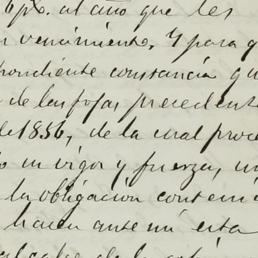 6 p%. al año que les
vencimiento. Y para q
pondiente constancia qu
de las fojas precedent
de 1856, de la cual proc
in vigor y fuerza,
la obligacion contem
hacen ante mi esta